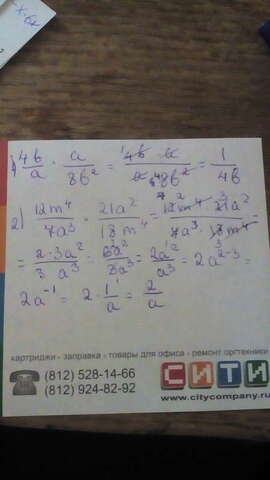 1) 4b/a · a/8b² = 4b · a / a · 8b² = 1/4b
2) 12m⁴/7a³ · 21a²/18m⁴ = 12m⁴ · 21a² / 7a³ · 18m⁴ =
= 2·3a²/3 a³ = 6a²/3a³ = 2a²/a³ = 2a²⁻³ =
2a⁻¹ = 2 · 1/a = 2/a
картриджи - заправка - товары для офиса - ремонт оргтехники
(812) 528-14-66
(812) 924-82-92
СИТИ
www.citycompany.ru